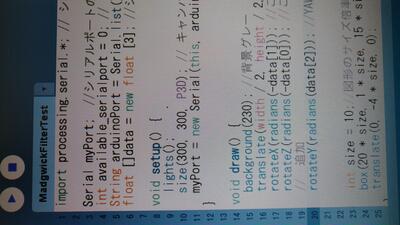 MadgwickFilterTest
1 import processing.serial.*; // シ
2
3 Serial myPort; //シリアルポートの
4 int available_serial_port = 0; /
5 String arduinoPort = Serial.list(
6 float []data = new float [3]; //シ
7
8 void setup() {
9 lights();
10 size(300, 300, P3D); // キャン
11 myPort = new Serial(this, arduin
12 }
13
14 void draw() {
15 background(230); // 背景グレー
16 translate(width / 2, height / 2,
17 rotateX(radians(-data[1])); //
18 rotateZ(radians(-data[0])); //
19 // 追加
20 rotateY(radians(data[2])); //YAW
21
22
23 int size = 10; // 図形のサイズ倍率
24 box(20 * size, 1 * size, 15 * si
25 translate(0, -4 * size, 0);